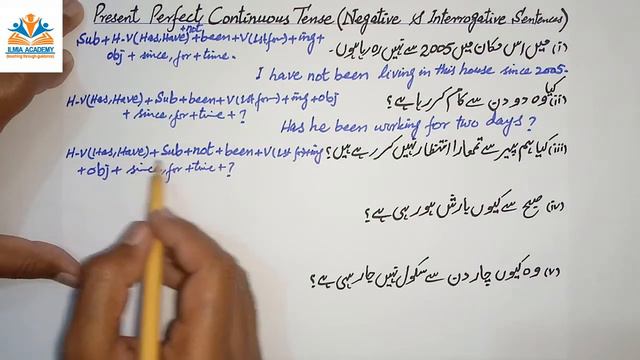 ILMIA ACADEMY
Present Perfect Continuous Tense (Negative & Interrogative Sentences)
Sub + H-V (Has, Have) + not + been + V (1st for) + ing +
obj + since, for + time.
(i) میں اس مکان میں 2005 سے نہیں رہ رہا ہوں۔
I have not been living in this house since 2005.
(ii) کیا وہ دو دن سے کام کر رہا ہے؟
H-V (Has, Have) + Sub + been + V (1st for) + ing + obj
+ since, for + time + ?
Has he been working for two days?
(iii) کیا ہم پیر سے تمھارا انتظار نہیں کر رہے ہیں؟
H-V (Has, Have) + Sub + not + been + V (1st for) + ing
+ obj + since, for + time + ?
(iv) صبح سے کیوں بارش ہو رہی ہے؟
(v) وہ کیوں چار دن سے سکول نہیں جا رہی ہے؟